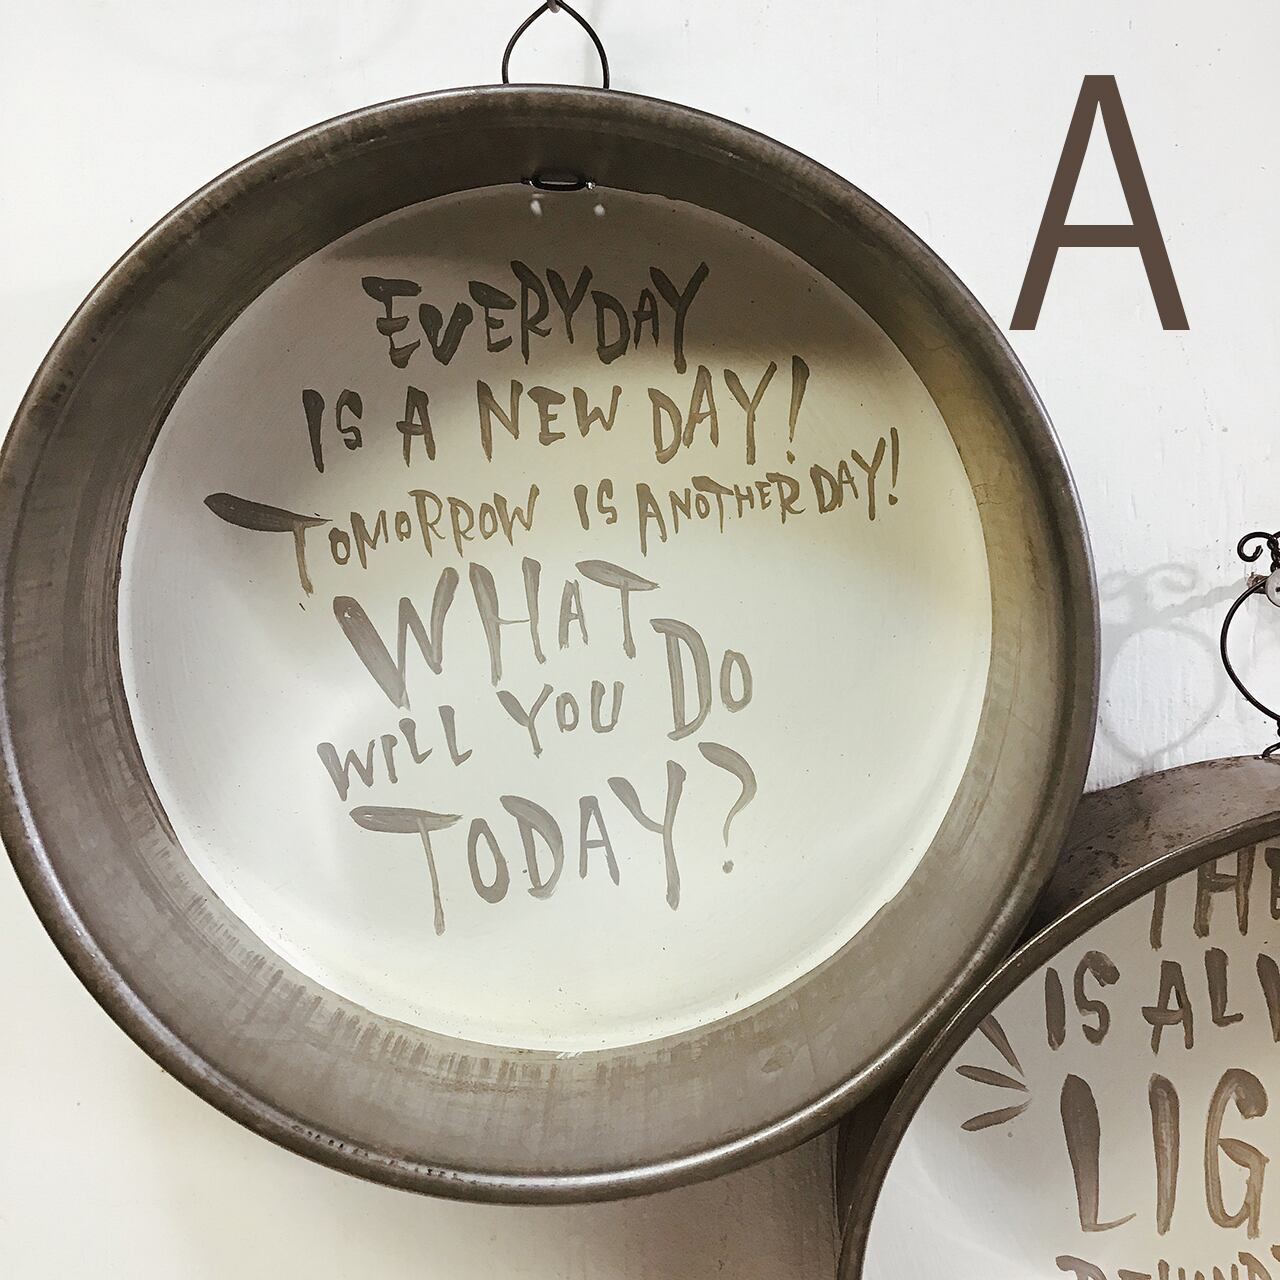 A
EVERYDAY
IS A NEW DAY!
TOMORROW IS ANOTHER DAY!
WHAT DO
WILL YOU
TODAY?
IS
LIG